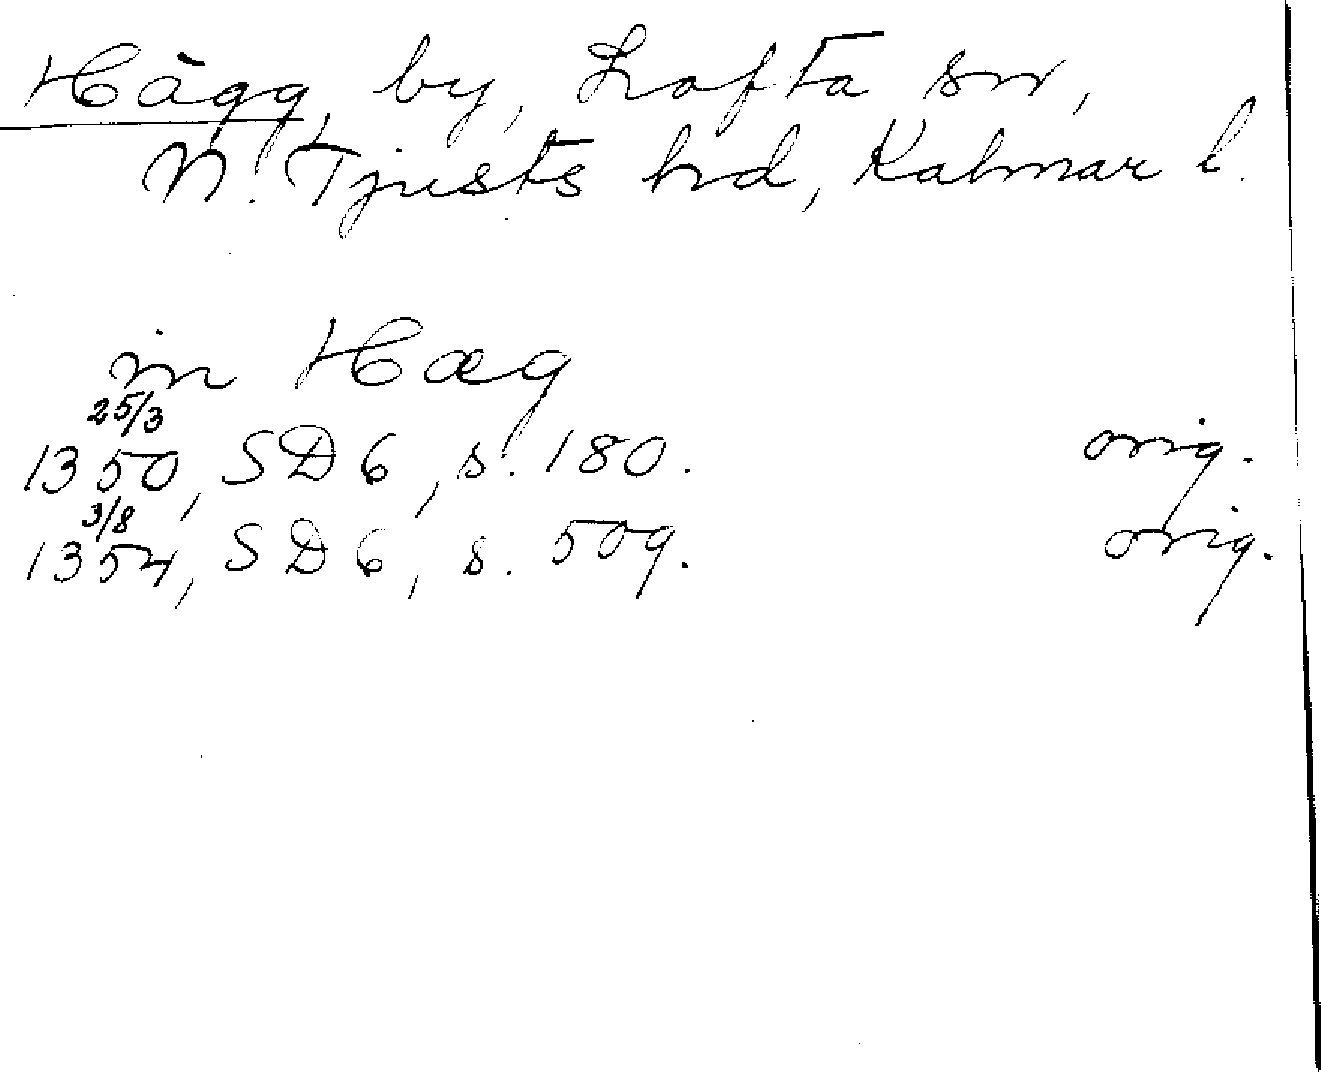 Hägg by, Lofta sn,
N. Tjusts hd, Kalmar l.
in Hæg
25/3
1350, SD 6, s. 180. orig.
3/8
1354, SD 6, s. 509. orig.